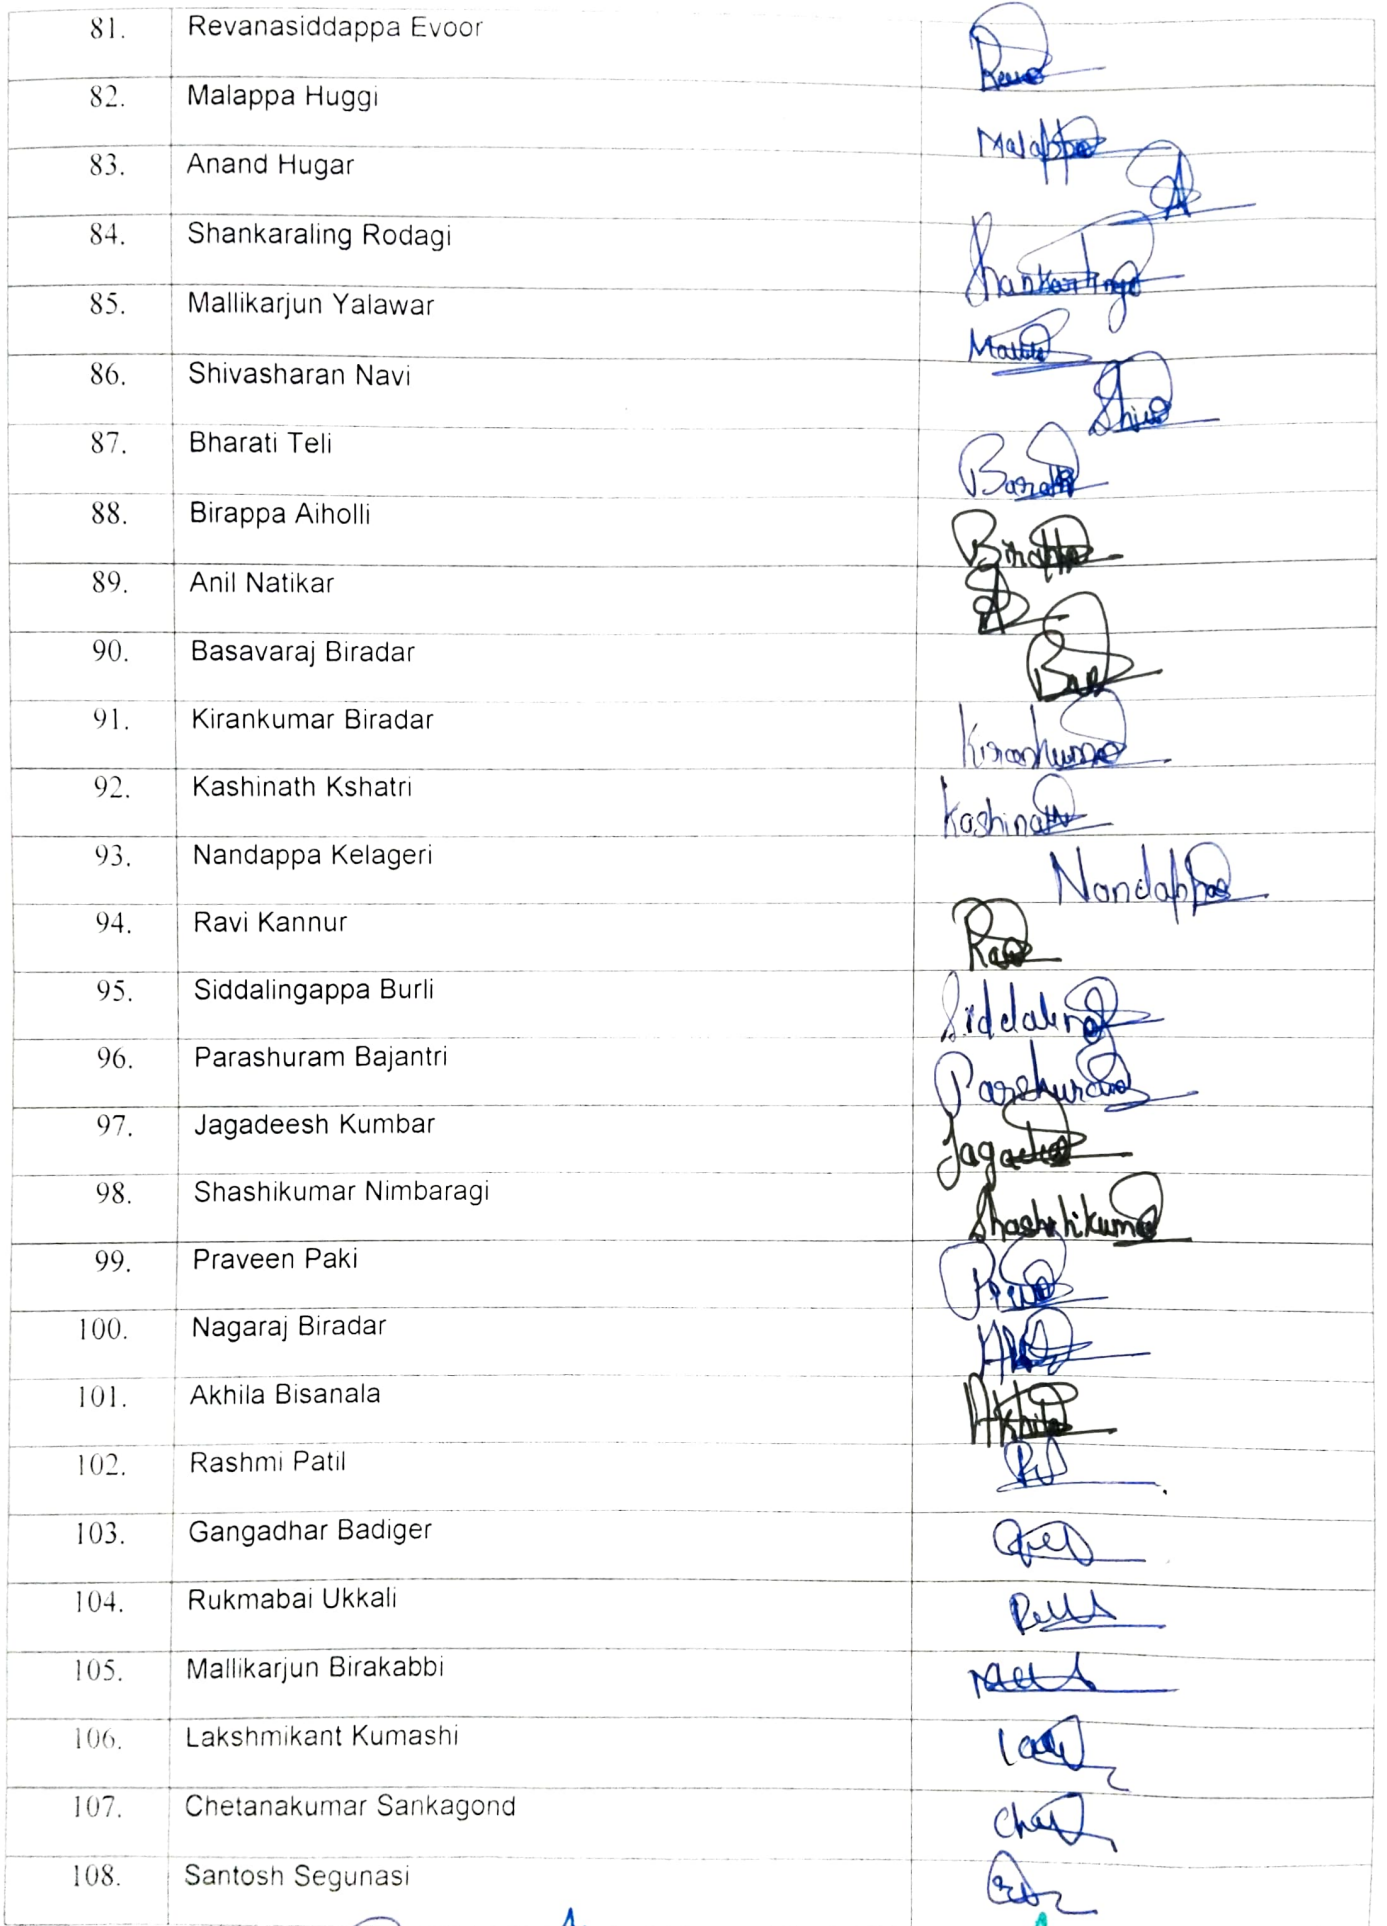 81. Revanasiddappa Evoor
82. Malappa Huggi Malappa
83. Anand Hugar
84. Shankaraling Rodagi
85. Mallikarjun Yalawar
86. Shivasharan Navi
87. Bharati Teli
88. Birappa Aiholli Birappa
89. Anil Natikar
90. Basavaraj Biradar
91. Kirankumar Biradar
92. Kashinath Kshatri Kashinath
93. Nandappa Kelageri Nandappa
94. Ravi Kannur
95. Siddalingappa Burli
96. Parashuram Bajantri
97. Jagadeesh Kumbar
98. Shashikumar Nimbaragi
99. Praveen Paki
100. Nagaraj Biradar
101. Akhila Bisanala Akhila
102. Rashmi Patil
103. Gangadhar Badiger
104. Rukmabai Ukkali
105. Mallikarjun Birakabbi
106. Lakshmikant Kumashi
107. Chetanakumar Sankagond
108. Santosh Segunasi